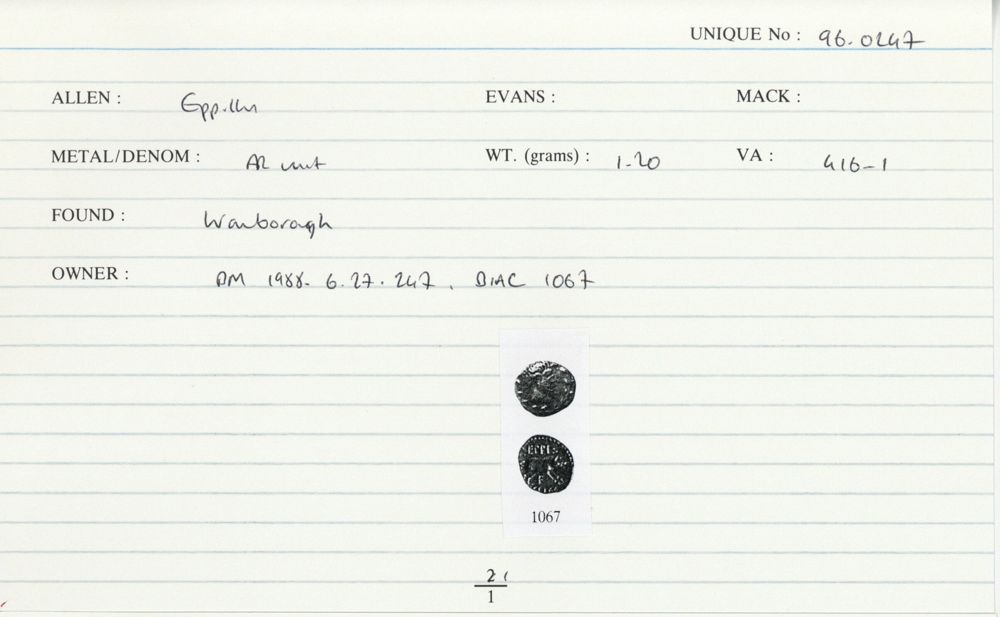 UNIQUE No : 96.0247
ALLEN : Eppillus EVANS : MACK :
METAL/DENOM : AR unit WT. (grams) : 1.20 VA : 416-1
FOUND : Wanborough
OWNER : BM 1988. 6.27.247. BIAC 1067
EPPI
F
1067
21
1